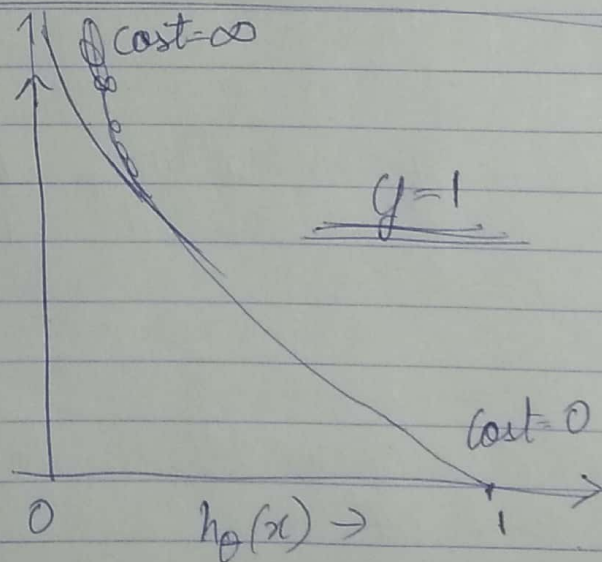 cost=∞
y=1
cost=0
0 h_θ(x) → 1